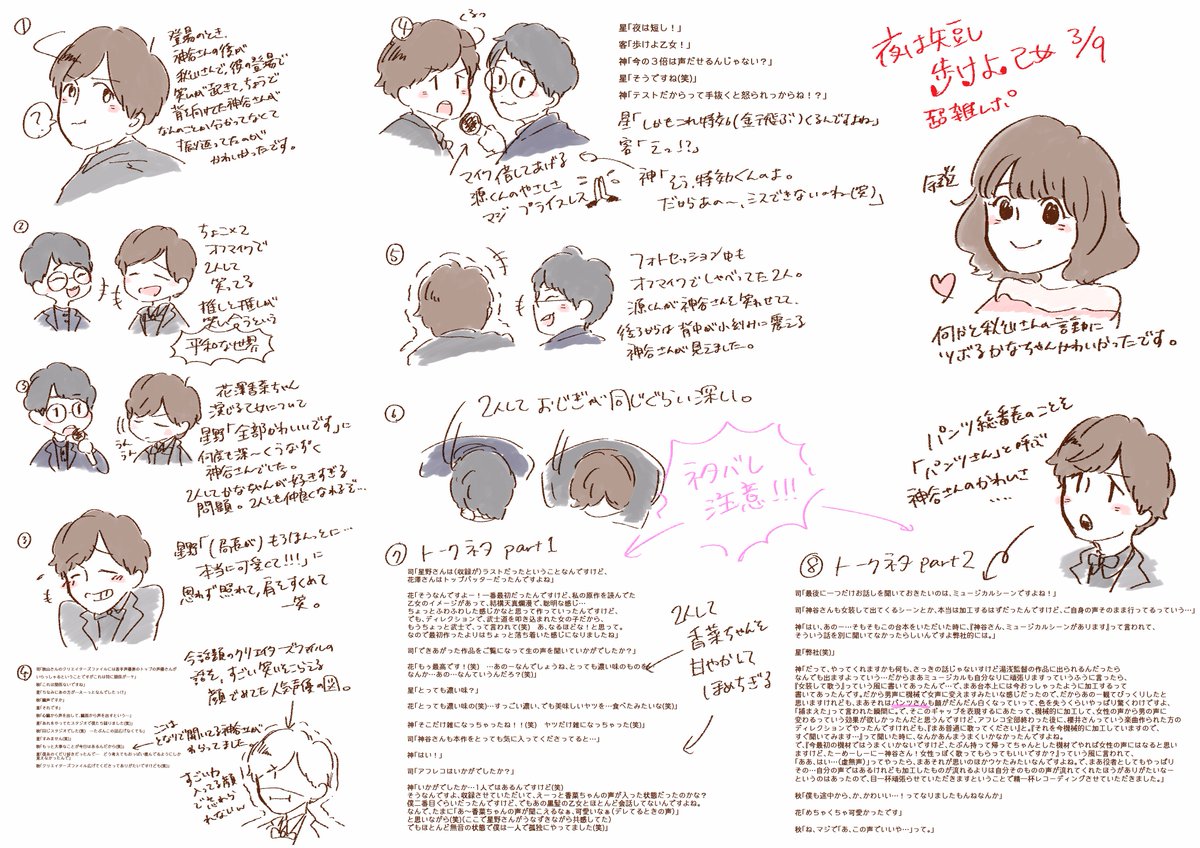 夜は短し
歩けよ乙女 3/9
超雑レポ
①
登場のとき、
神谷さんの後が
秋山さんで、彼の登場で
笑いが起きて、ちょうど
背を向けてた神谷さんが
なんのことか分かってなくて
振り返ってたのが
かわいかったです。
?
②
ちょこっとして
オフマイクで
2人して
笑ってる
推しと推しが
笑い合うという
平和な世界
③
花澤香菜ちゃん
演じる乙女について
星野「全部かわいいです」に
何度も深〜くうなずく
神谷さんでした。
2人してかなちゃんが好きすぎる
問題。2人とも仲良くなれるぞ…
うん
うん
③
星野「(局長が)もうほんとに…
本当に可愛くて!!!」に
思わず照れて、肩をすくめて
一笑。
④
今話題のクリエイターズファイルの
話を、すごい笑いをこらえる
顔でめてた人気声優の図。
となりで聞いてる神谷さんが
すごいわ
入ってる顔
で忘れら
れないw
④
くるっ
星「夜は短し!」
客「歩けよ乙女!」
神「今の3倍は声だせるんじゃない?」
星「そうですね(笑)」
神「テストだからって手抜くと怒られっからね!?」
星「しかもこれ特効(金テ飛ぶ)くるんですよね〜」
客「えっ!?」
神「そう、特効くんのよ。
だからあの〜、ミスできないのね(笑)」
マイク倍してあげる
源くんのやさしさ
マジ プライスレス
⑤
フォトセッション中も
オフマイクでしゃべってた2人。
源くんが神谷さんを笑わせてて、
後ろからは背中が小刻みに震える
神谷さんが見えました〜。
⑥
2人して おじぎが同じぐらい深い。
ネタバレ
注意!!!
余談
何かと秋山さんの言動に
ツボるかなちゃんかわいかったです。
パンツ総番長のことを
「パンツさん」と呼ぶ
神谷さんのかわいさ
….
⑦ トークネタ part1
司「星野さんは(収録が)ラストだったということなんですけど、
花澤さんはトップバッターだったんですよね」
花「そうなんですよー!一番最初だったんですけど、私の原作を読んでた
乙女のイメージがあって、結構天真爛漫で、聡明な感じ…
ちょっとふわふわした感じかなと思って作っていったんですけど、
でも、ディレクションで、武士道を叩き込まれた女の子だから、
もうちょっと武士で、って言われて(笑) あ、なるほどな!と思って。
なので最初作ったよりはちょっと落ち着いた感じになりましたね」
司「できあがった作品をご覧になって生の声を聞いていかがでしたか?」
花「もっ最高です!(笑) …あのーなんでしょうね、とっても濃い味のものを
なんか…あの…なんていうんだろ?(笑)」
星「とっても濃い味?」
花「とっても濃い味の(笑)…すっごい濃い、でも美味しいヤツを…食べたみたいな(笑)」
神「そこだけ雑になっちゃったね!!(笑) ヤツだけ雑になっちゃった(笑)」
司「神谷さんも本作をとっても気に入ってくださってると…」
神「はい!」
司「アフレコはいかがでしたか?」
神「いかがでしたか…1人ではあるんですけど(笑)
そうなんですよ、収録させていただいて、えーっと香菜ちゃんの声が入った状態だったのかな?
僕二番目ぐらいだったんですけど、でもあの黒髪の乙女とほとんど会話してないんですよね。
なんで、たまに「あ〜香菜ちゃんの声が聞こえるなぁ、可愛いなぁ(デレてるときの声)」
と思いながら(笑)(ここで星野さんがうなずきながら共感してた)
でもほとんど無音の状態で僕は一人で孤独にやってました(笑)」
2人して
香菜ちゃんを
甘やかして
ほめちぎる
⑧ トークネタ part2
司「最後に一つだけお話しを聞いておきたいのは、ミュージカルシーンですよね!」
司「神谷さんも女装して出てくるシーンとか、本当は加工するはずだったんですけど、ご自身の声そのまま行ってるっていう…」
神「はい、あのー…そもそもこの台本をいただいた時に、『神谷さん、ミュージカルシーンがあります』って言われて、
そういう話を別に聞いてなかったらしいんですよ弊社的には。」
星「弊社(笑)」
神「だって、やってくれますかも何も、さっきの話じゃないけど湯浅監督の作品に出られるんだったら
なんでも出ますよっていう…だからまあミュージカルも自分なりに頑張りますっていうふうに言ったら、
『女装して歌う』っていう風に書いてあったんで…で、まあ台本上には今おっしゃったように加工するって
書いてあったんです。だから男声に機械で女声に変えますみたいな感じだったので、だからあの一瞬でびっくりしたと
思いますけれども、まあそれはパンツさんも顔がだんだん白くなっていって、色を失うくらいやっぱり驚くわけですよ、
「捕まえた」って言われた瞬間に。で、そこのギャップを表現するにあたって、機械的に加工して、女性の声から男の声に
変わるっていう効果が欲しかったんだと思うんですけど、アフレコ全部終わった後に、櫻井さんていう楽曲作られた方の
ディレクションでやったんですけれども、『まあ普通に歌ってください』と。『それを今機械的に加工していますので、
すぐ聞いてます…』って聞いた時に、なんかあんまうまくいかなかったんですよね。
で、『今最初の機材ではうまくいかないですけど、たぶん持って帰ってちゃんとした機材でやれば女性の声にはなると思い
ますけど、たーめーしーにー神谷さん!女性っぽく歌ってもらってもいいですか?』っていう風に言われて、
「ああ、はい…(虚無声)」ってやったら、まあそれが思いのほかウケたみたいなんですよね。で、まあ役者としてもやっぱり
その…自分の声ではあるけれども加工したものが流れるよりは自分そのものの声が流れてくれたほうがありがたいなー
というのはあったので、目一杯頑張らせていただきますということで精一杯レコーディングさせていただきました。」
秋「僕も途中から、か、かわいい…!ってなりましたもんねなんか」
花「めちゃくちゃ可愛かったです」
秋「ね、マジで「あ、この声でいいや…」って。」